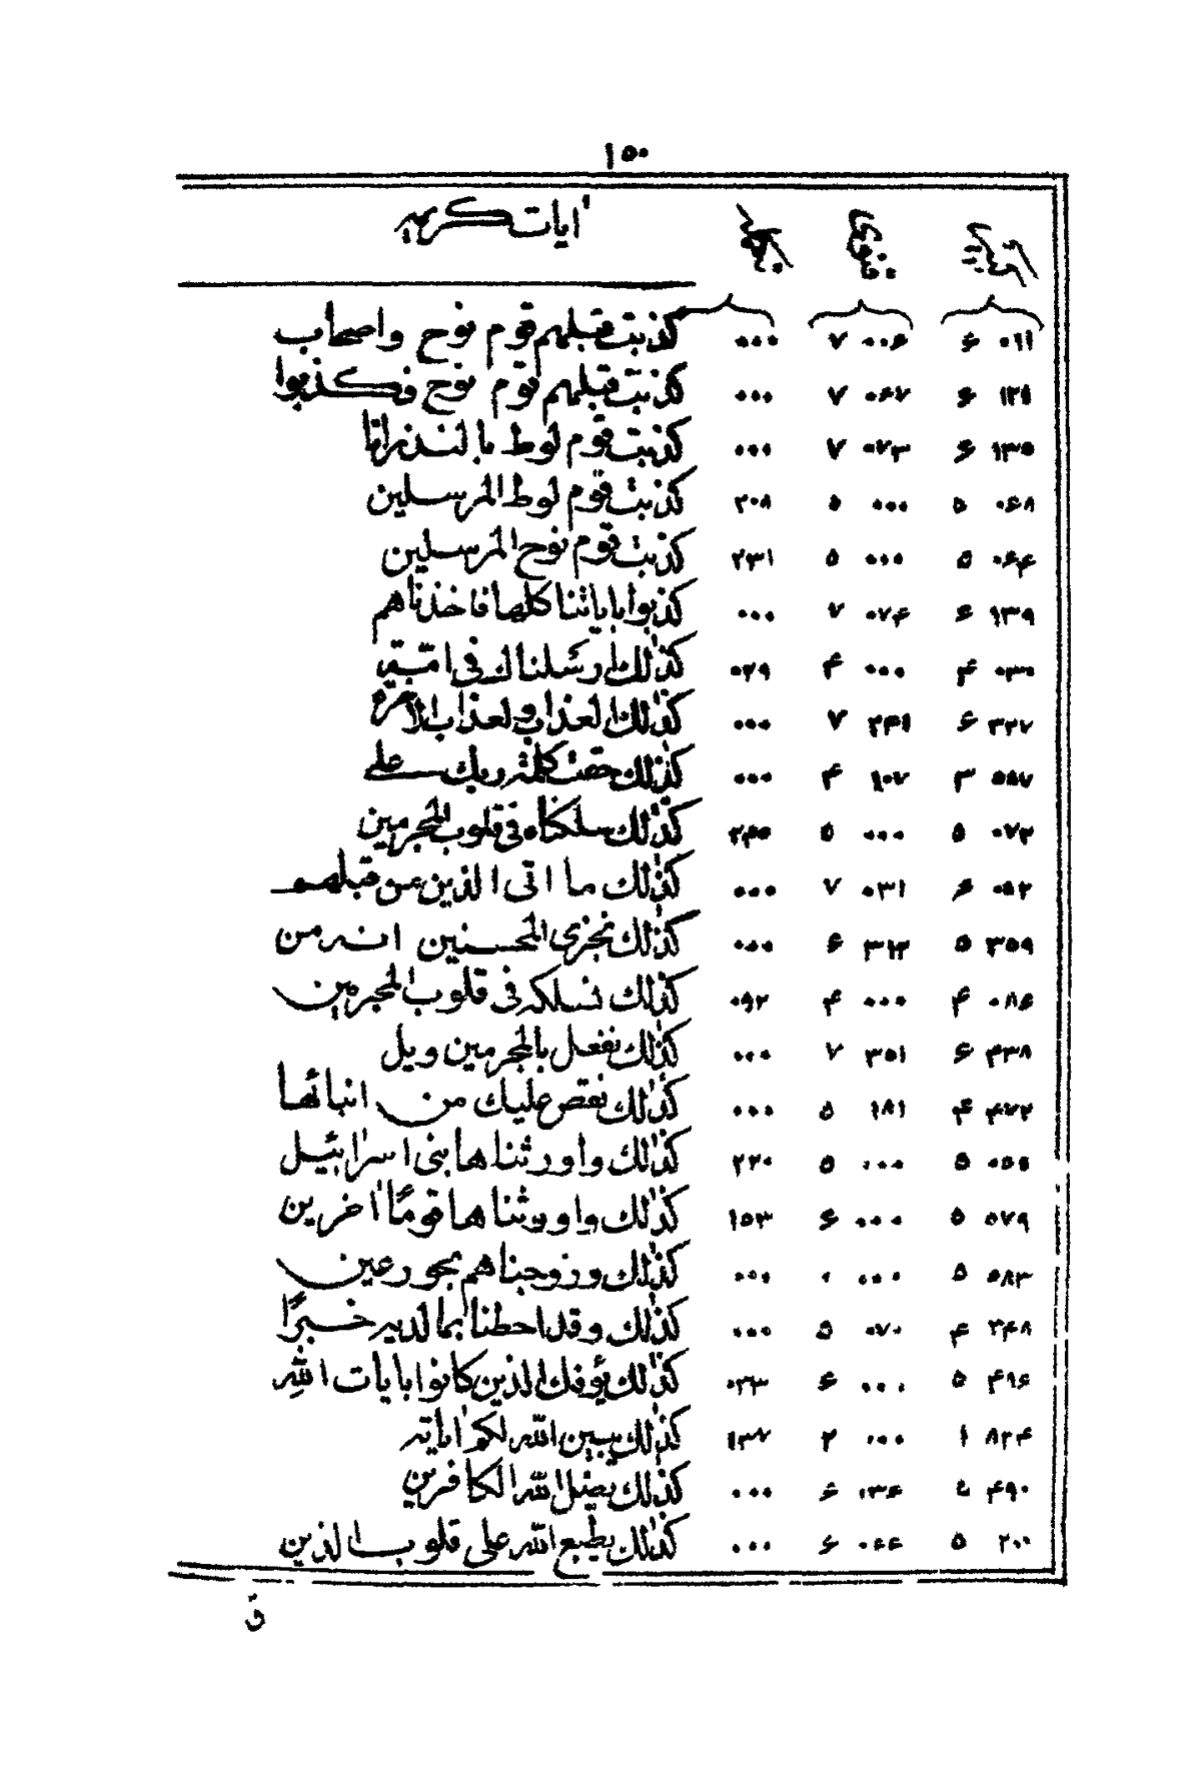 ١٥٠
اٰيات كريمه
٠٦١ ۶ ٠٠۶ ٧ ٠٠٠ كذبت قبلهم قوم نوح واصحاب
١٢٩ ۶ ٠۶٧ ٧ ٠٠٠ كذبت قبلهم قوم نوح فكذبوا
١٣٥ ۶ ٠٧٣ ٧ ٠٠٠ كذبت قوم لوط بالنذر انا
٠۶٨ ٥ ٠٠٠ ٥ ٢٠٨ كذبت قوم لوط المرسلين
٠۶۴ ٥ ٠٠٠ ٥ ٢٣١ كذبت قوم نوح المرسلين
١٣٩ ۶ ٠٧۴ ٧ ٠٠٠ كذبوا باياتنا كلها فاخذناهم
٠٣٠ ۴ ٠٠٠ ۴ ٠٢٩ كذٰلك ارسلناك فى امّة
٣٢٧ ۶ ٢۴١ ٧ ٠٠٠ كذٰلك العذاب ولعذاب الاخرة
٥٨٧ ٣ ١٠٧ ۴ ٠٠٠ كذٰلك حقت كلمة ربك على
٠٧٢ ٥ ٠٠٠ ٥ كذٰلك سلكناه فى قلوب المجرمين
٠٥٢ ۶ ٠٣١ ٧ ٠٠٠ كذٰلك ما اتى الذين من قبلهم
٣٥٩ ٥ ٣١٢ ۶ ٠٠٠ كذٰلك نجزى المحسنين انه من
٠٨۶ ۴ ٠٠٠ ۴ ٠٩٢ كذٰلك نسلكه فى قلوب المجرمين
۴٣٨ ۶ ٣٥١ ٧ ٠٠٠ كذٰلك نفعل بالمجرمين ويل
۴٧٢ ۴ ١٨١ ٥ ٠٠٠ كذٰلك نقص عليك من انبائها
٠٥٩ ٥ ٠٠٠ ٥ ٢٢٠ كذٰلك واورثناها بنى اسرائيل
٥٧٩ ٥ ٠٠٠ ۶ ١٥٣ كذٰلك واورثناها قومًا اٰخرين
٥٨٣ ٥ ٠٠٠ ٠ ٠٠٠ كذٰلك وزوجناهم بحور عين
٢۴٨ ۴ ٠٧٠ ٥ ٠٠٠ كذٰلك وقد احطنا بما لديه خبرًا
۴٩۶ ٥ ٠٠٠ ۶ ٠٣٣ كذٰلك يؤفك الذين كانوا باٰيات اللّٰه
٨٢۴ ١ ٠٠٠ ٢ ١٣٧ كذٰلك يبين اللّٰه لكم اٰياته
۴٩٠ ٥ ٠٣۶ ۶ ٠٠٠ كذٰلك يضل اللّٰه الكافرين
٢٠٠ ٥ ٠۶۶ ۶ ٠٠٠ كذٰلك يطبع اللّٰه على قلوب الذين